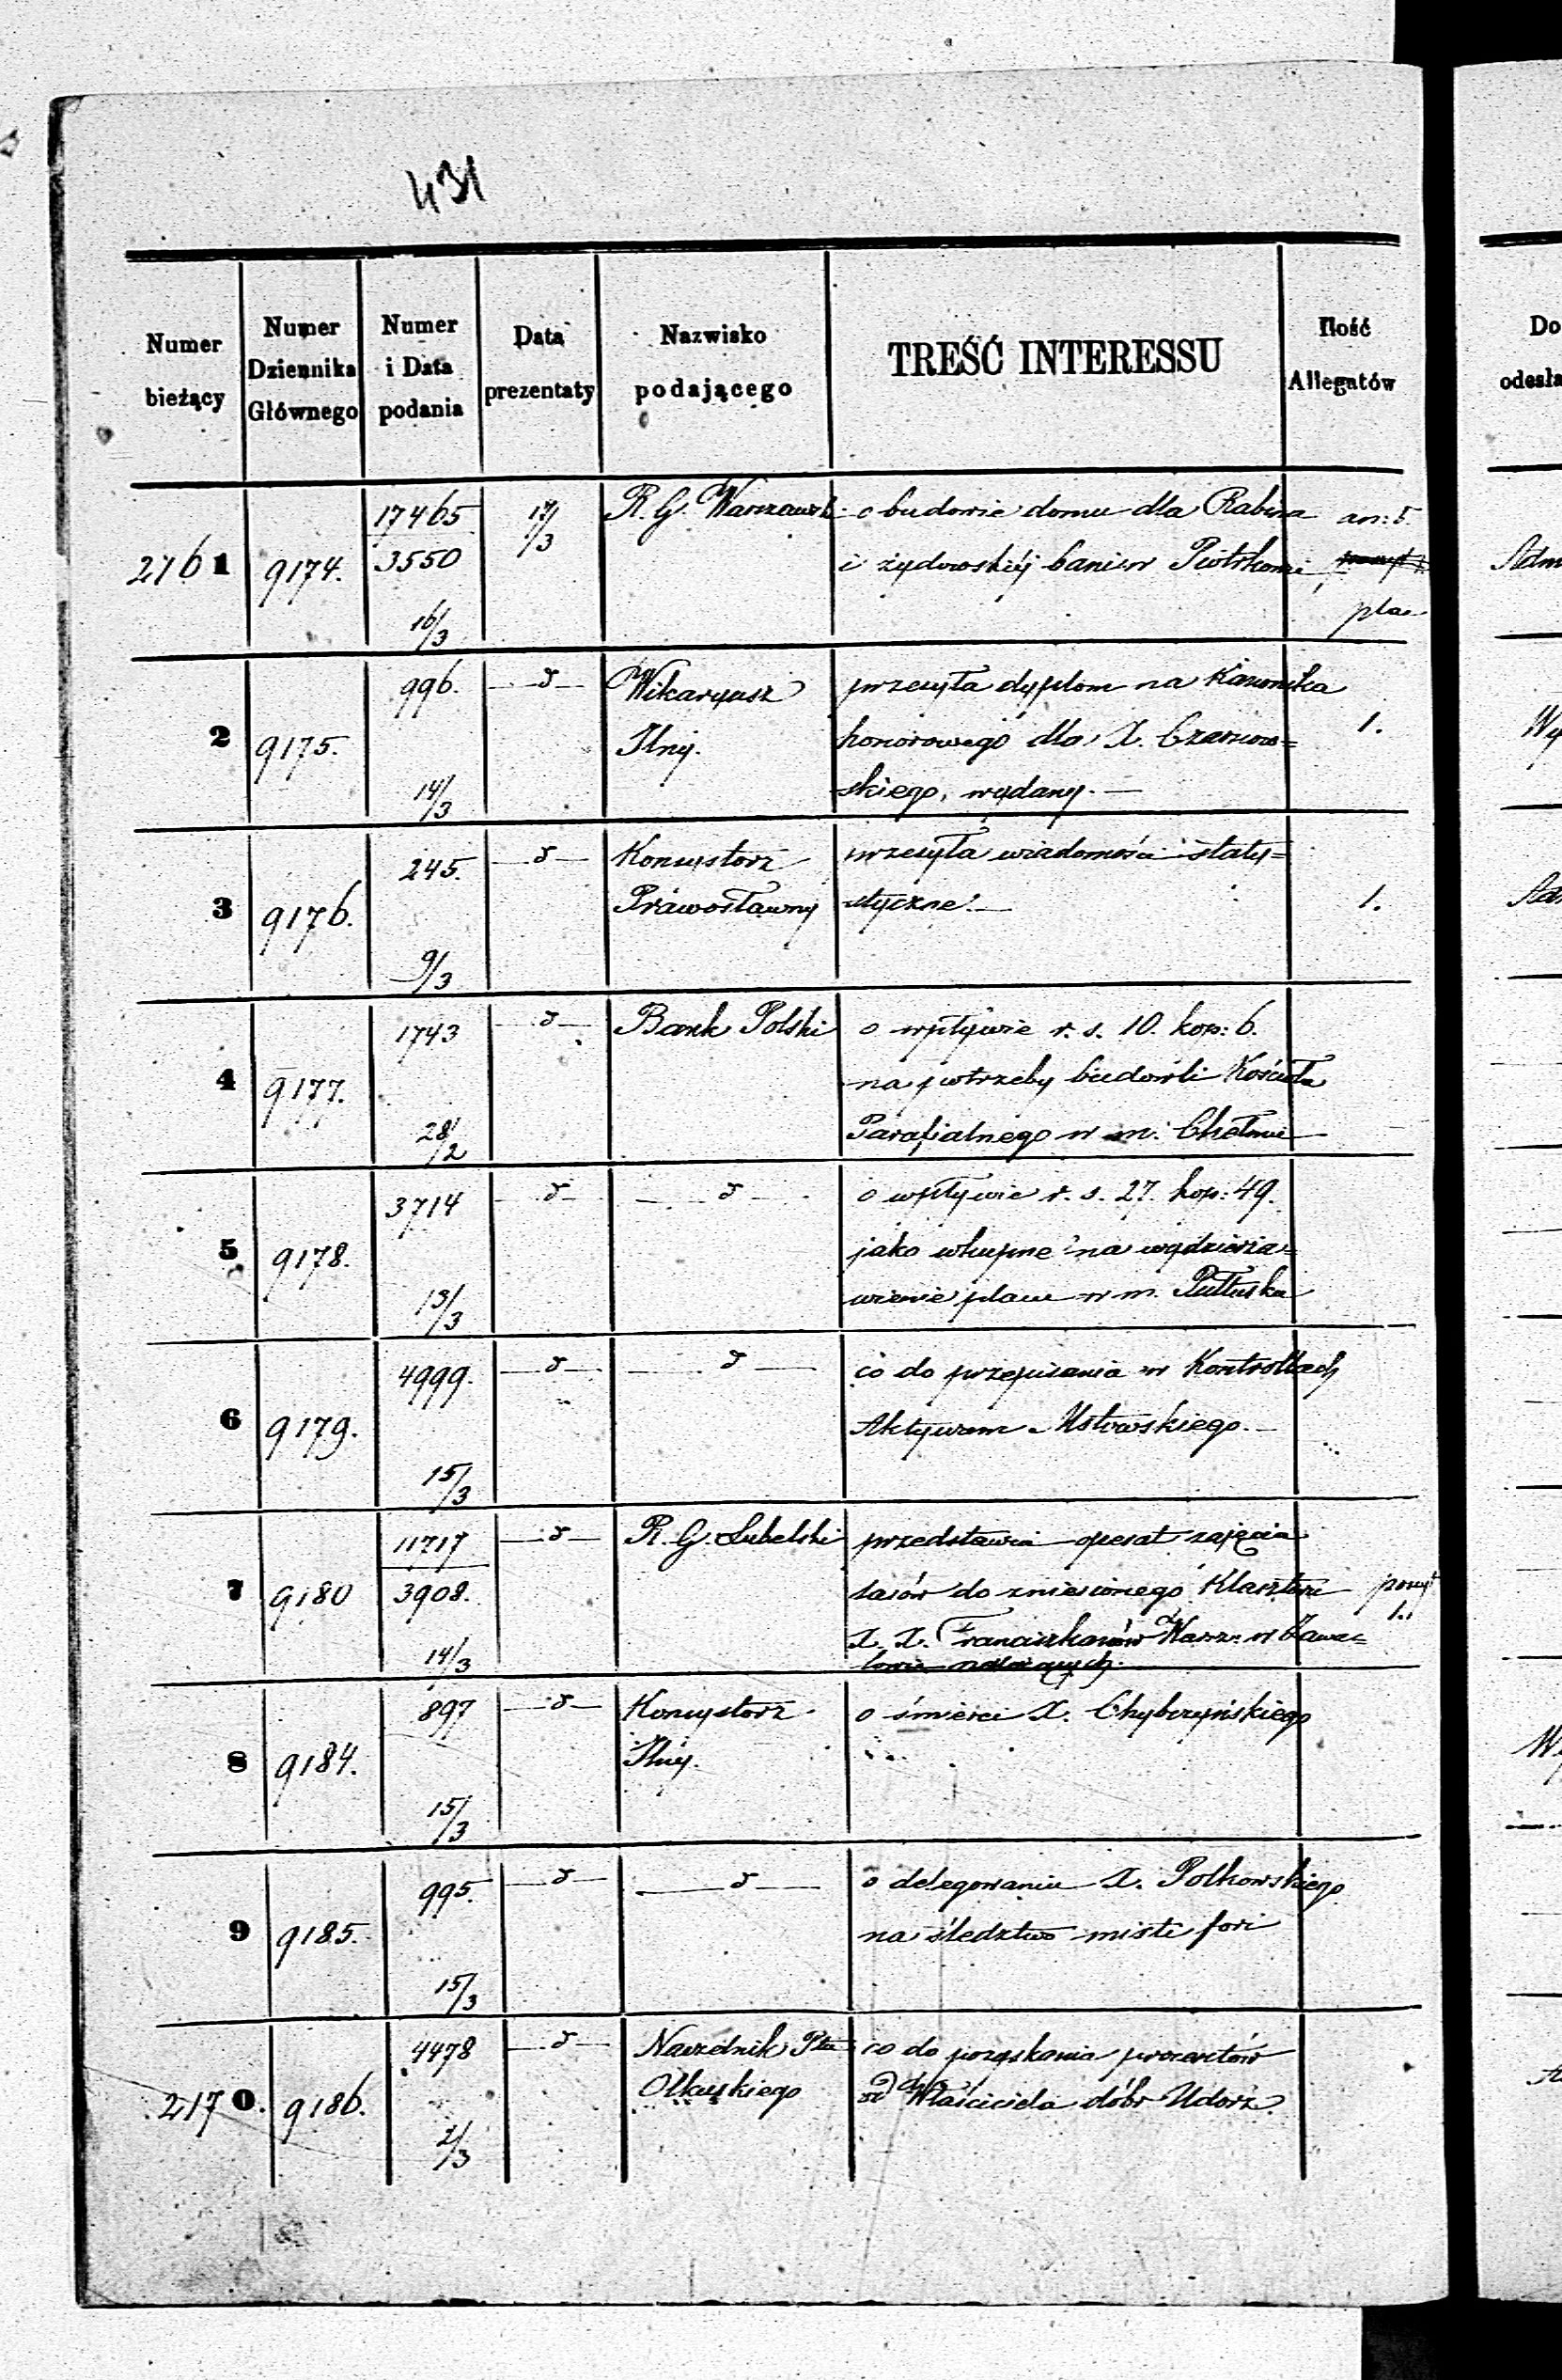 431
Numer bieżący
Numer Dziennika Głównego
Numer i Data podania
Data prezentaty
Nazwisko podającego
TREŚĆ INTERESSU
Ilość Allegatów
Do
odesła
2761 9174. 17465 17/3 R. G. Warszawsk. o budowie domu dla Rabina an: 5.
3550 i żydowskiéj w Piotrkowie
16/3 plac
2 9175. 996. d Wikaryusz przesyła dyplom na Kanonika 1.
honorowego dla X. Czarnow=
14/3 skiego, wydany.
3 9176. 245. d Konsystorz przesyła wiadomości staty= 1.
Prawosławny styczne.
9/3
4 9177. 1743 d Bank Polski o wpływie r. s. 10. kop: 6.
na potrzeby budowli Kościoła
28/2 Parafialnego w m. Chełmie
5 9178. 3714 d d o wpływie r. s. 27. kop: 49.
jako wkupne na wydzierża=
13/3 wienie placu w m. Pułtusku
6 9179. 4999. d d co do przepisania w Kontrollach
Aktywem
15/3
7 9180 11717 d R. G. Lubelski przedstawia operat zajęcia
3908. lasów do zniesionego Klasztoru 1.
14/3 X. X. Franciszkanów w
należących.
8 9184. 897 d Konsystorz o śmierci X. Chybczyńskiego
15/3
9 9185. 995. d d o delegowaniu X. Polkowskiego
na śledztwo misti fori
15/3
2170. 9186. 4478 d Naczelnik Ptu co do pozyskania procentów
Olkuskiego od Właściciela dóbr Udorz.
2/3